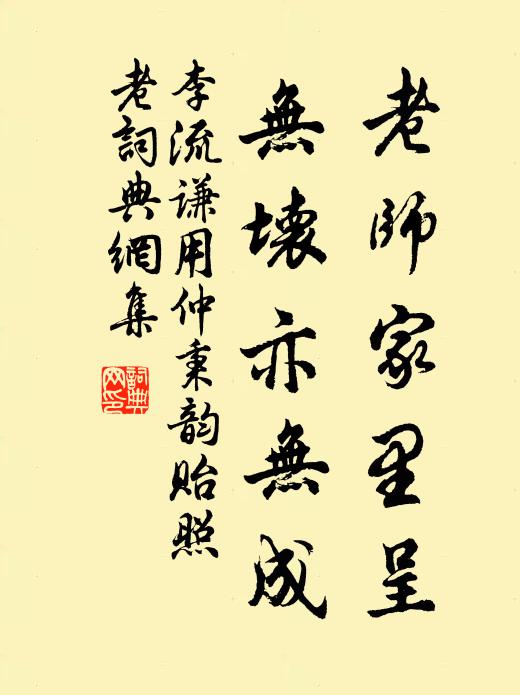 老師家里呈
無壞亦無成
李流謙用仲秉韵貽照
老詞典網集
詞典
网印